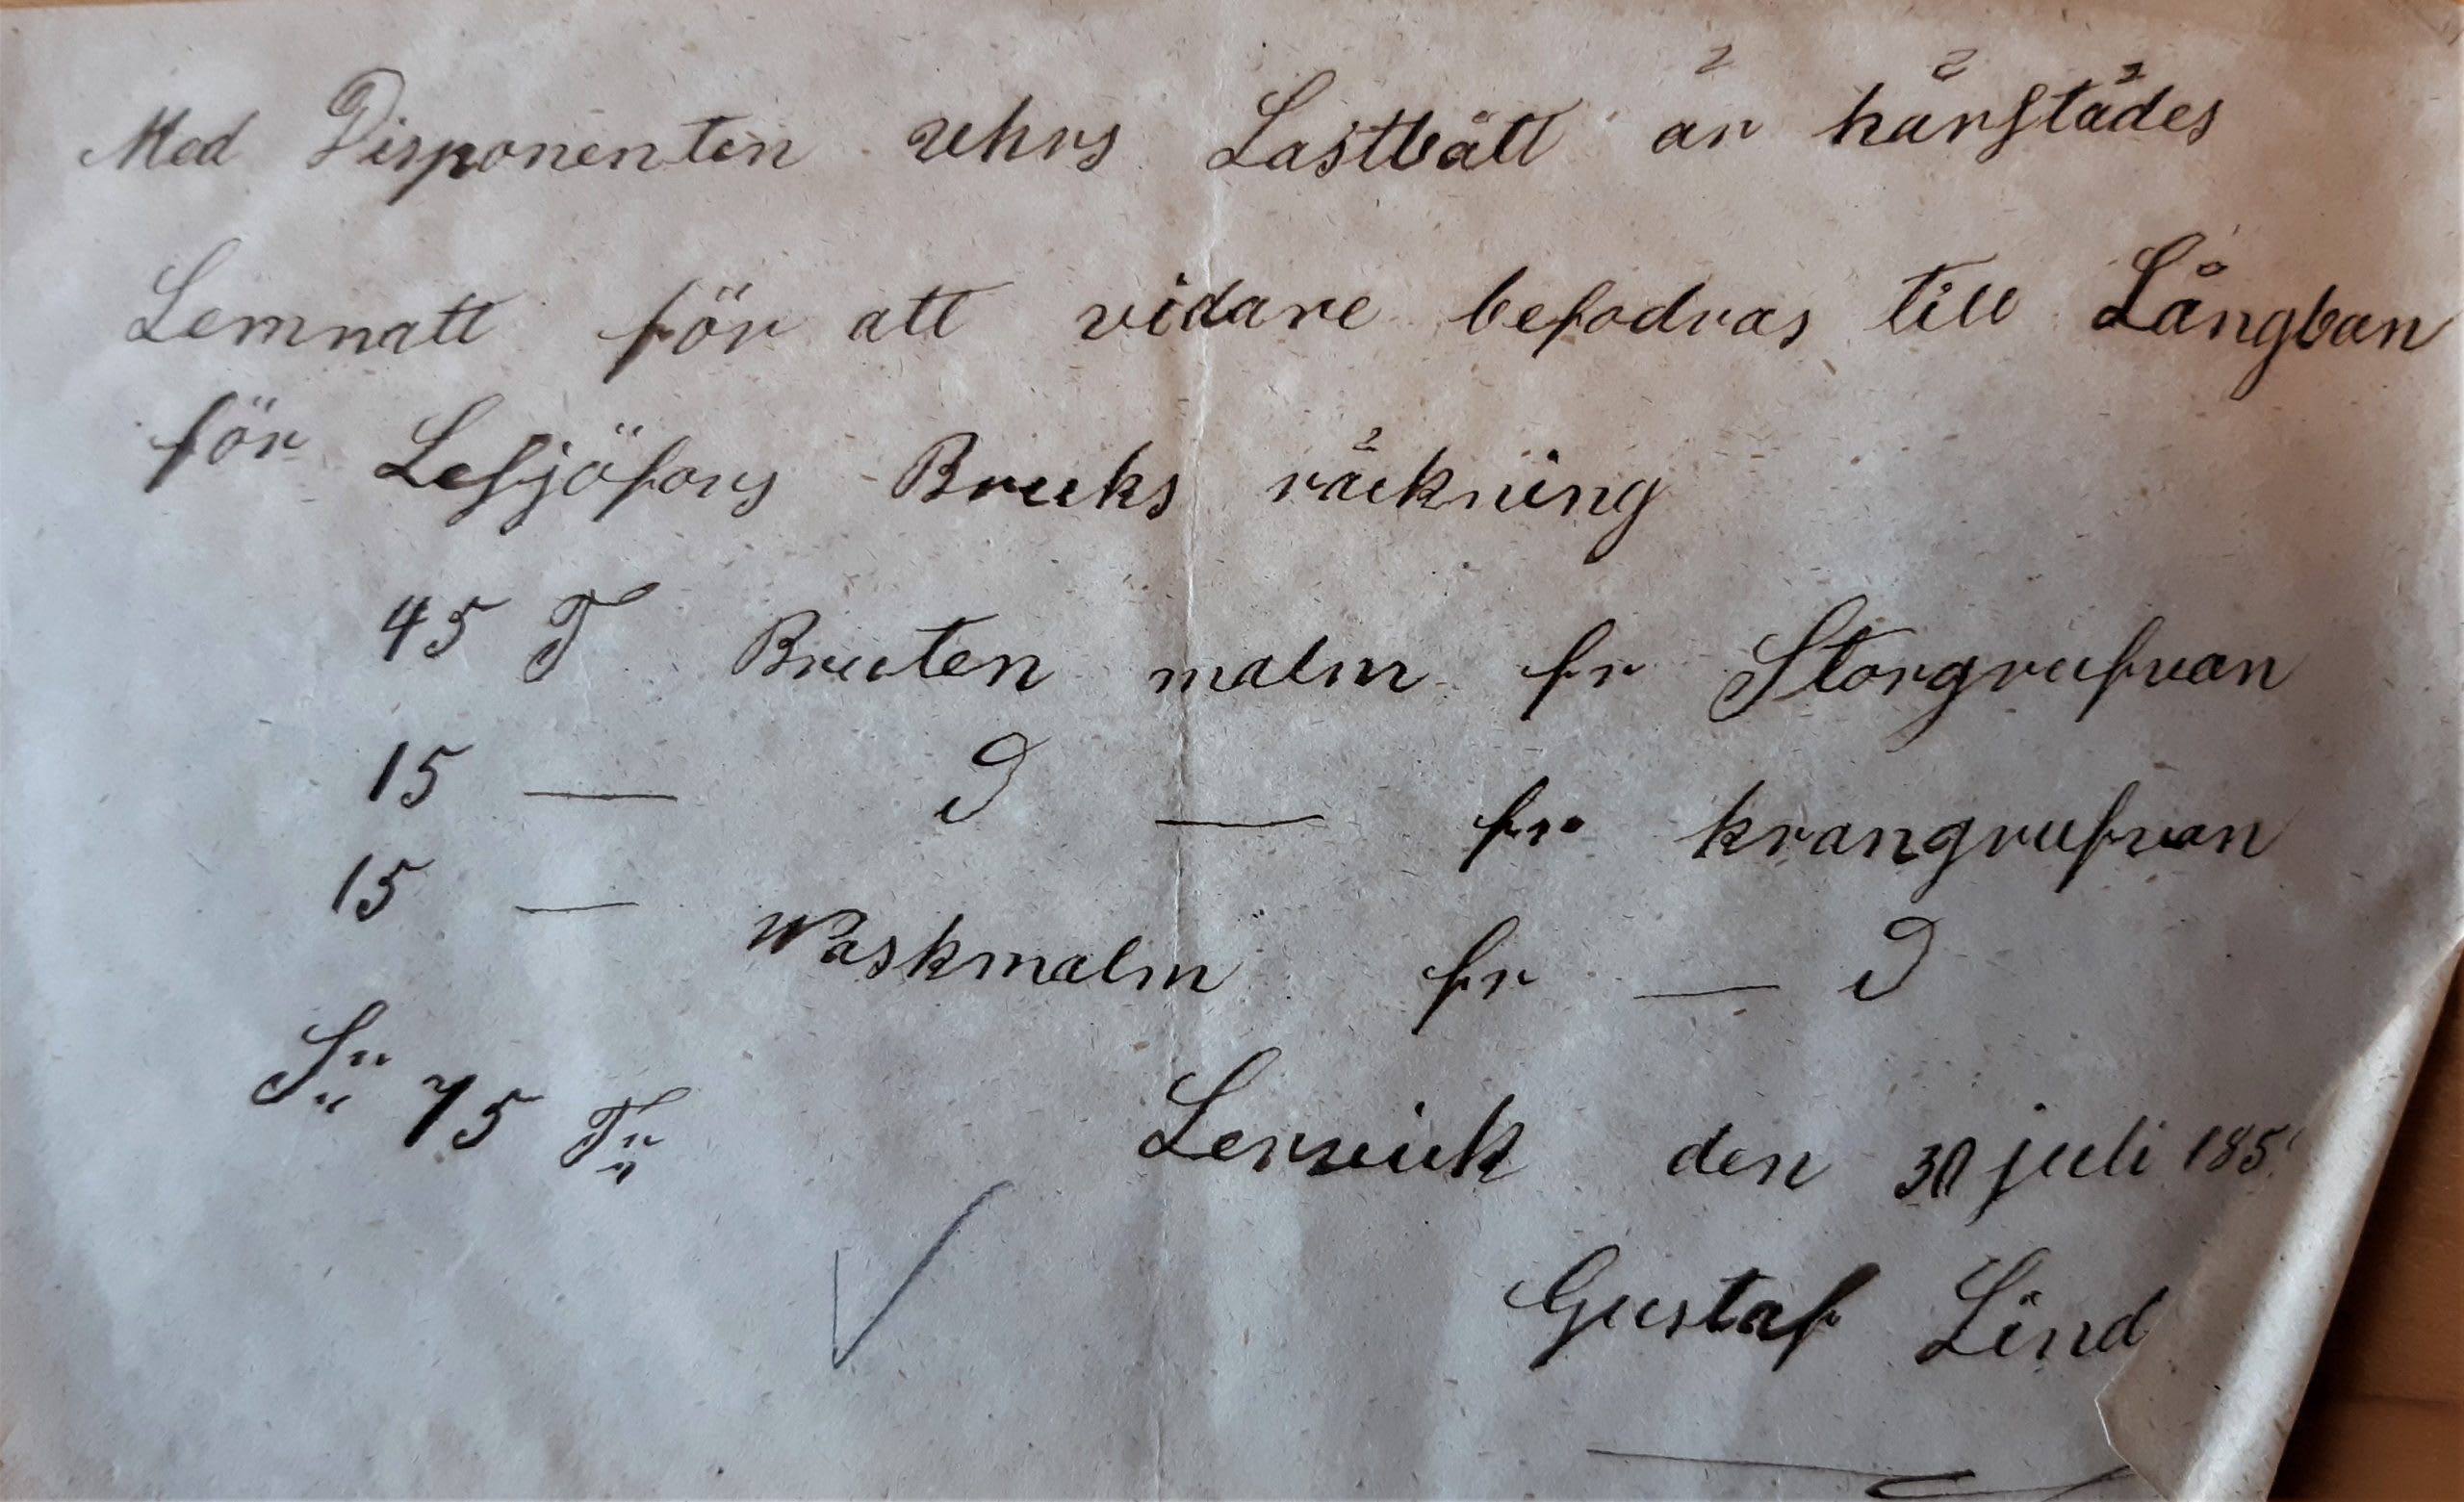 Med Disponenten Uhrs Lastbått är härstädes
Lemnatt för att vidare befodras till Långban
för Lesjöfors Bruks räckning
45 T Bruten malm fr Storgrufvan
15 — D — fr krangrufvan
15 — Waskmalm fr — D
S:" 75 T:"
Lervik den 30 juli 185
Gustaf Lind